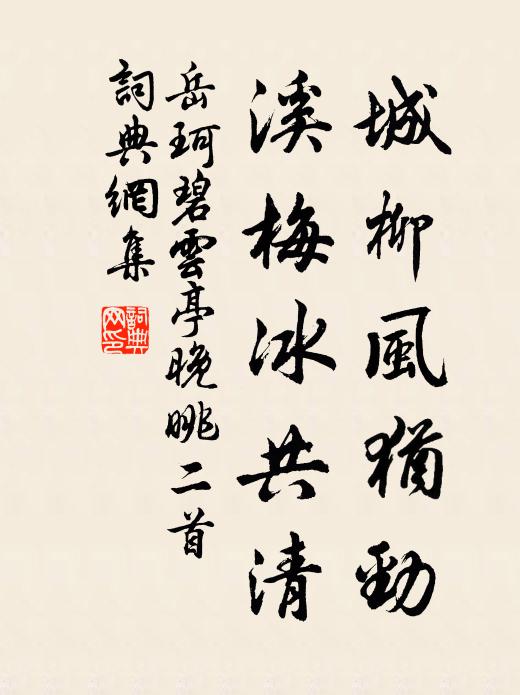 城柳風猶勁
溪梅冰共清
岳珂碧雲亭晚眺二首
詞典網集
詞典网印